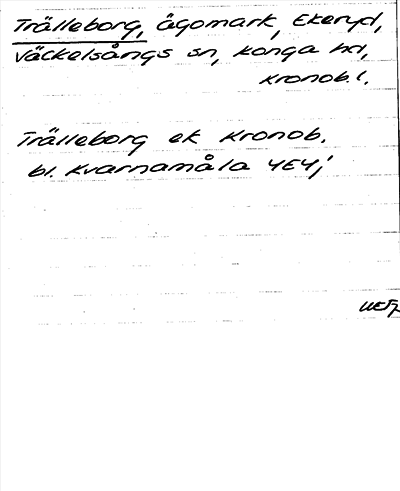 Trälleborg, ägomark, Ekeryd,
Väckelsångs sn, Konga hd,
Kronob. l.
Trälleborg ek Kronob.
bl. Kvarnamåla 4E4j